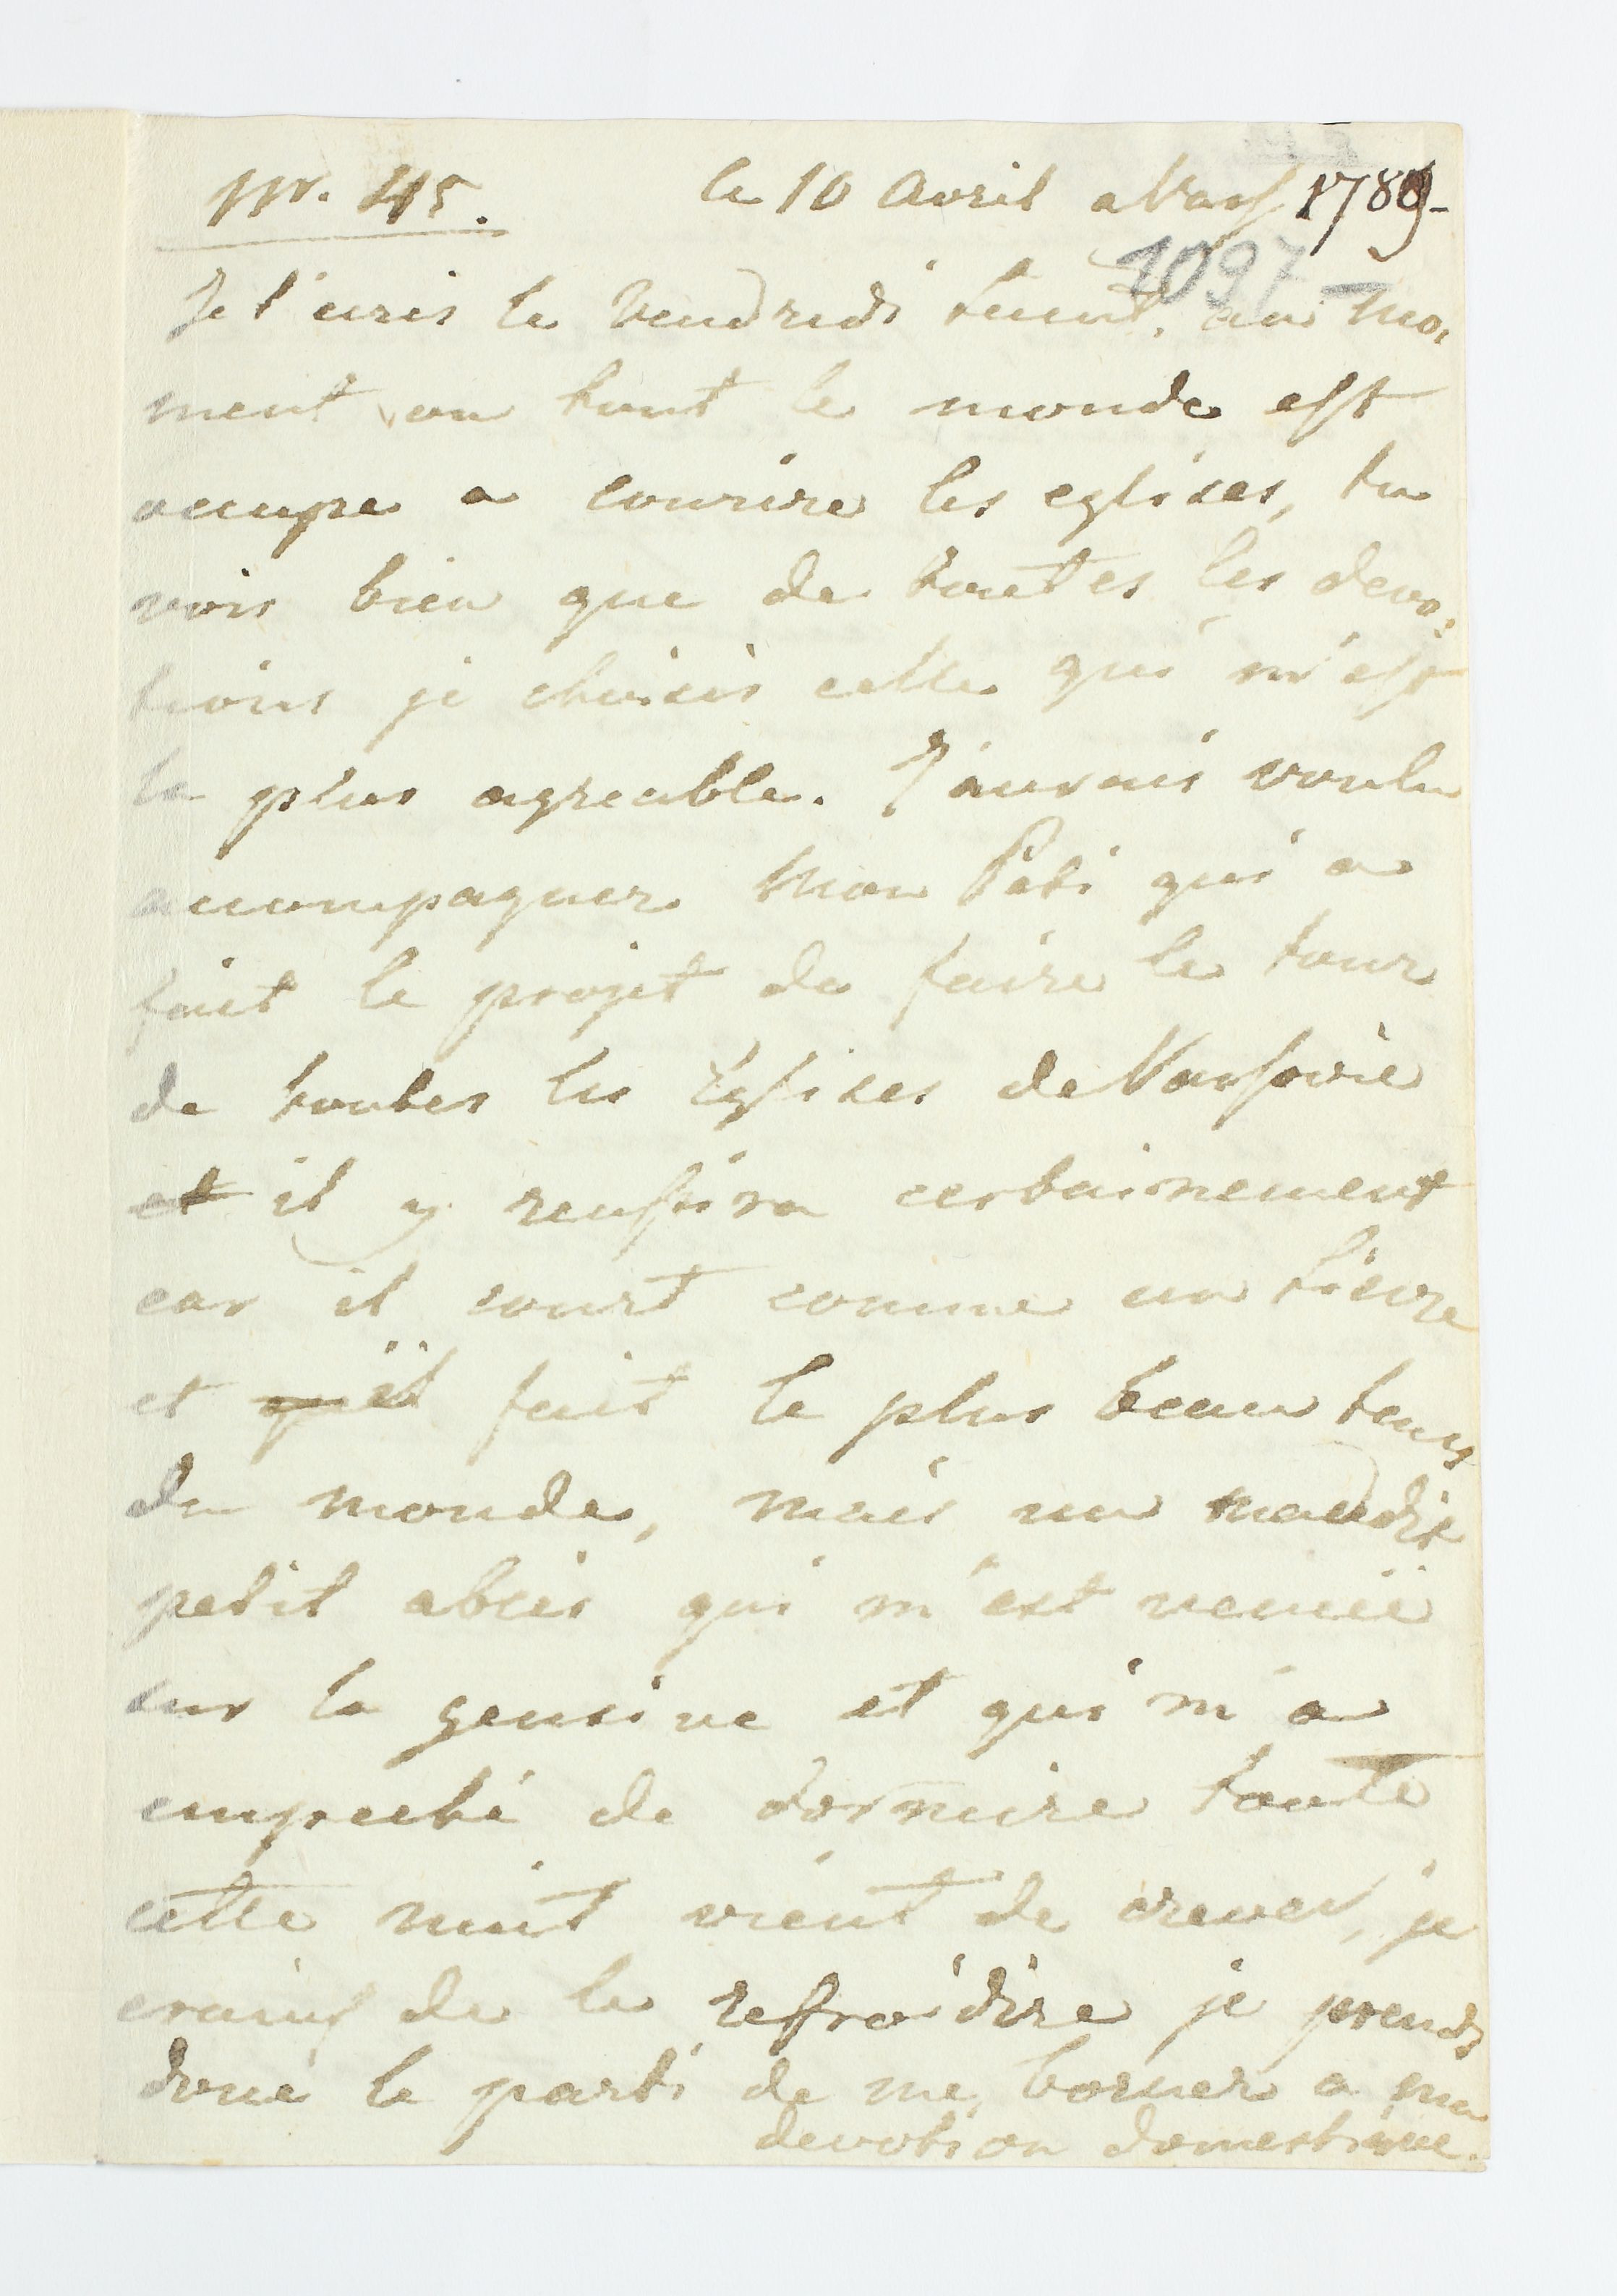 nr. 45. le 10 Avril a Vars 1789-
1097
Je t'ecris le Vendredi saint, au mo-
ment ou tout le monde est
occupe a courire les eglises, tu
vois bien que de toutes les devo-
tions je choisis celle qui m'est
la plus agreable. J'aurais voulu
accompagner Mon Pebi qui a
fait le projet de faire le tour
de toutes les Eglises de Varsovie
et il y reussira certainement
car il court comme un lievre
et qu'il fait le plus beau tems
du monde, mais un maudit
petit absces qui m'est venuë
sur la gensive et qui m'a
empeché de dormire toute
cette nuit vient de crever, je
crains de le refroidire je prends
donc le parti de me borner a ma
devotion domestique.